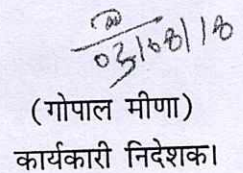 03/08/18
(गोपाल मीणा)
कार्यकारी निदेशक।